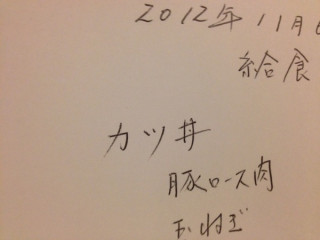 2012年11月6
給食
カツ丼
豚ロース肉
玉ねぎ